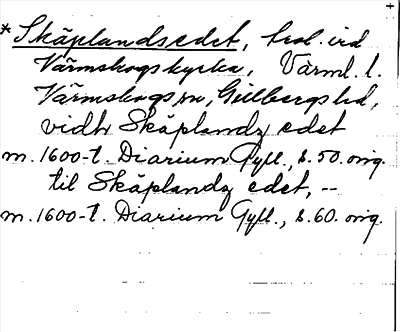 *Skäplandsedet, trol. vid
Värmskogs kyrka, Värml. l.
Värmskogs sn, Gillbergs hd,
vidh Skäplandz edet
m. 1600-t. Diarium Gyll., s. 50. orig.
til Skäplandz edet, --
m. 1600-t. Diarium Gyll., s. 60. orig.